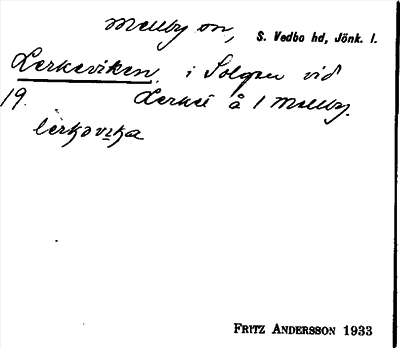 Mellby sn, S. Vedbo hd, Jönk. l.
Lerkeviken i Solgen vid
19. å 1 Mellby.
FRITZ ANDERSSON 1933